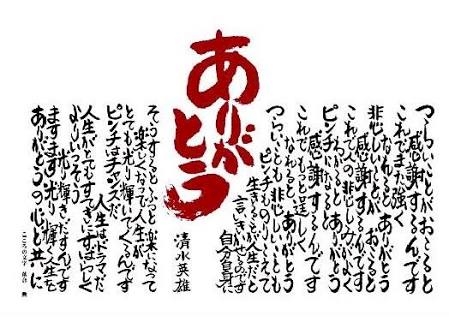 ありがとう
つらいことがおこると
感謝するんです
これでまた強く
なれると ありがとう
悲しいことがおこると
感謝するんです
これで人の悲しみがよく
わかると ありがとう
ピンチになると
感謝するんです
これでもっと逞しく
なれると ありがとう
つらいことも悲しいことも
ピンチものりこえて
生きることが人生だと
言いきかせるのです
自分自身に
清水英雄
そうするとふっと楽になって
楽しくなって人生が
とても光り輝いてくるんです
ピンチはチャンスだ
人生はドラマだ
人生がとてもすてきにすばらしく
よりいっそう
光り輝きだすんです
ますます光り輝く人生を
ありがとうの心と共に
こころの文字 落合 勲